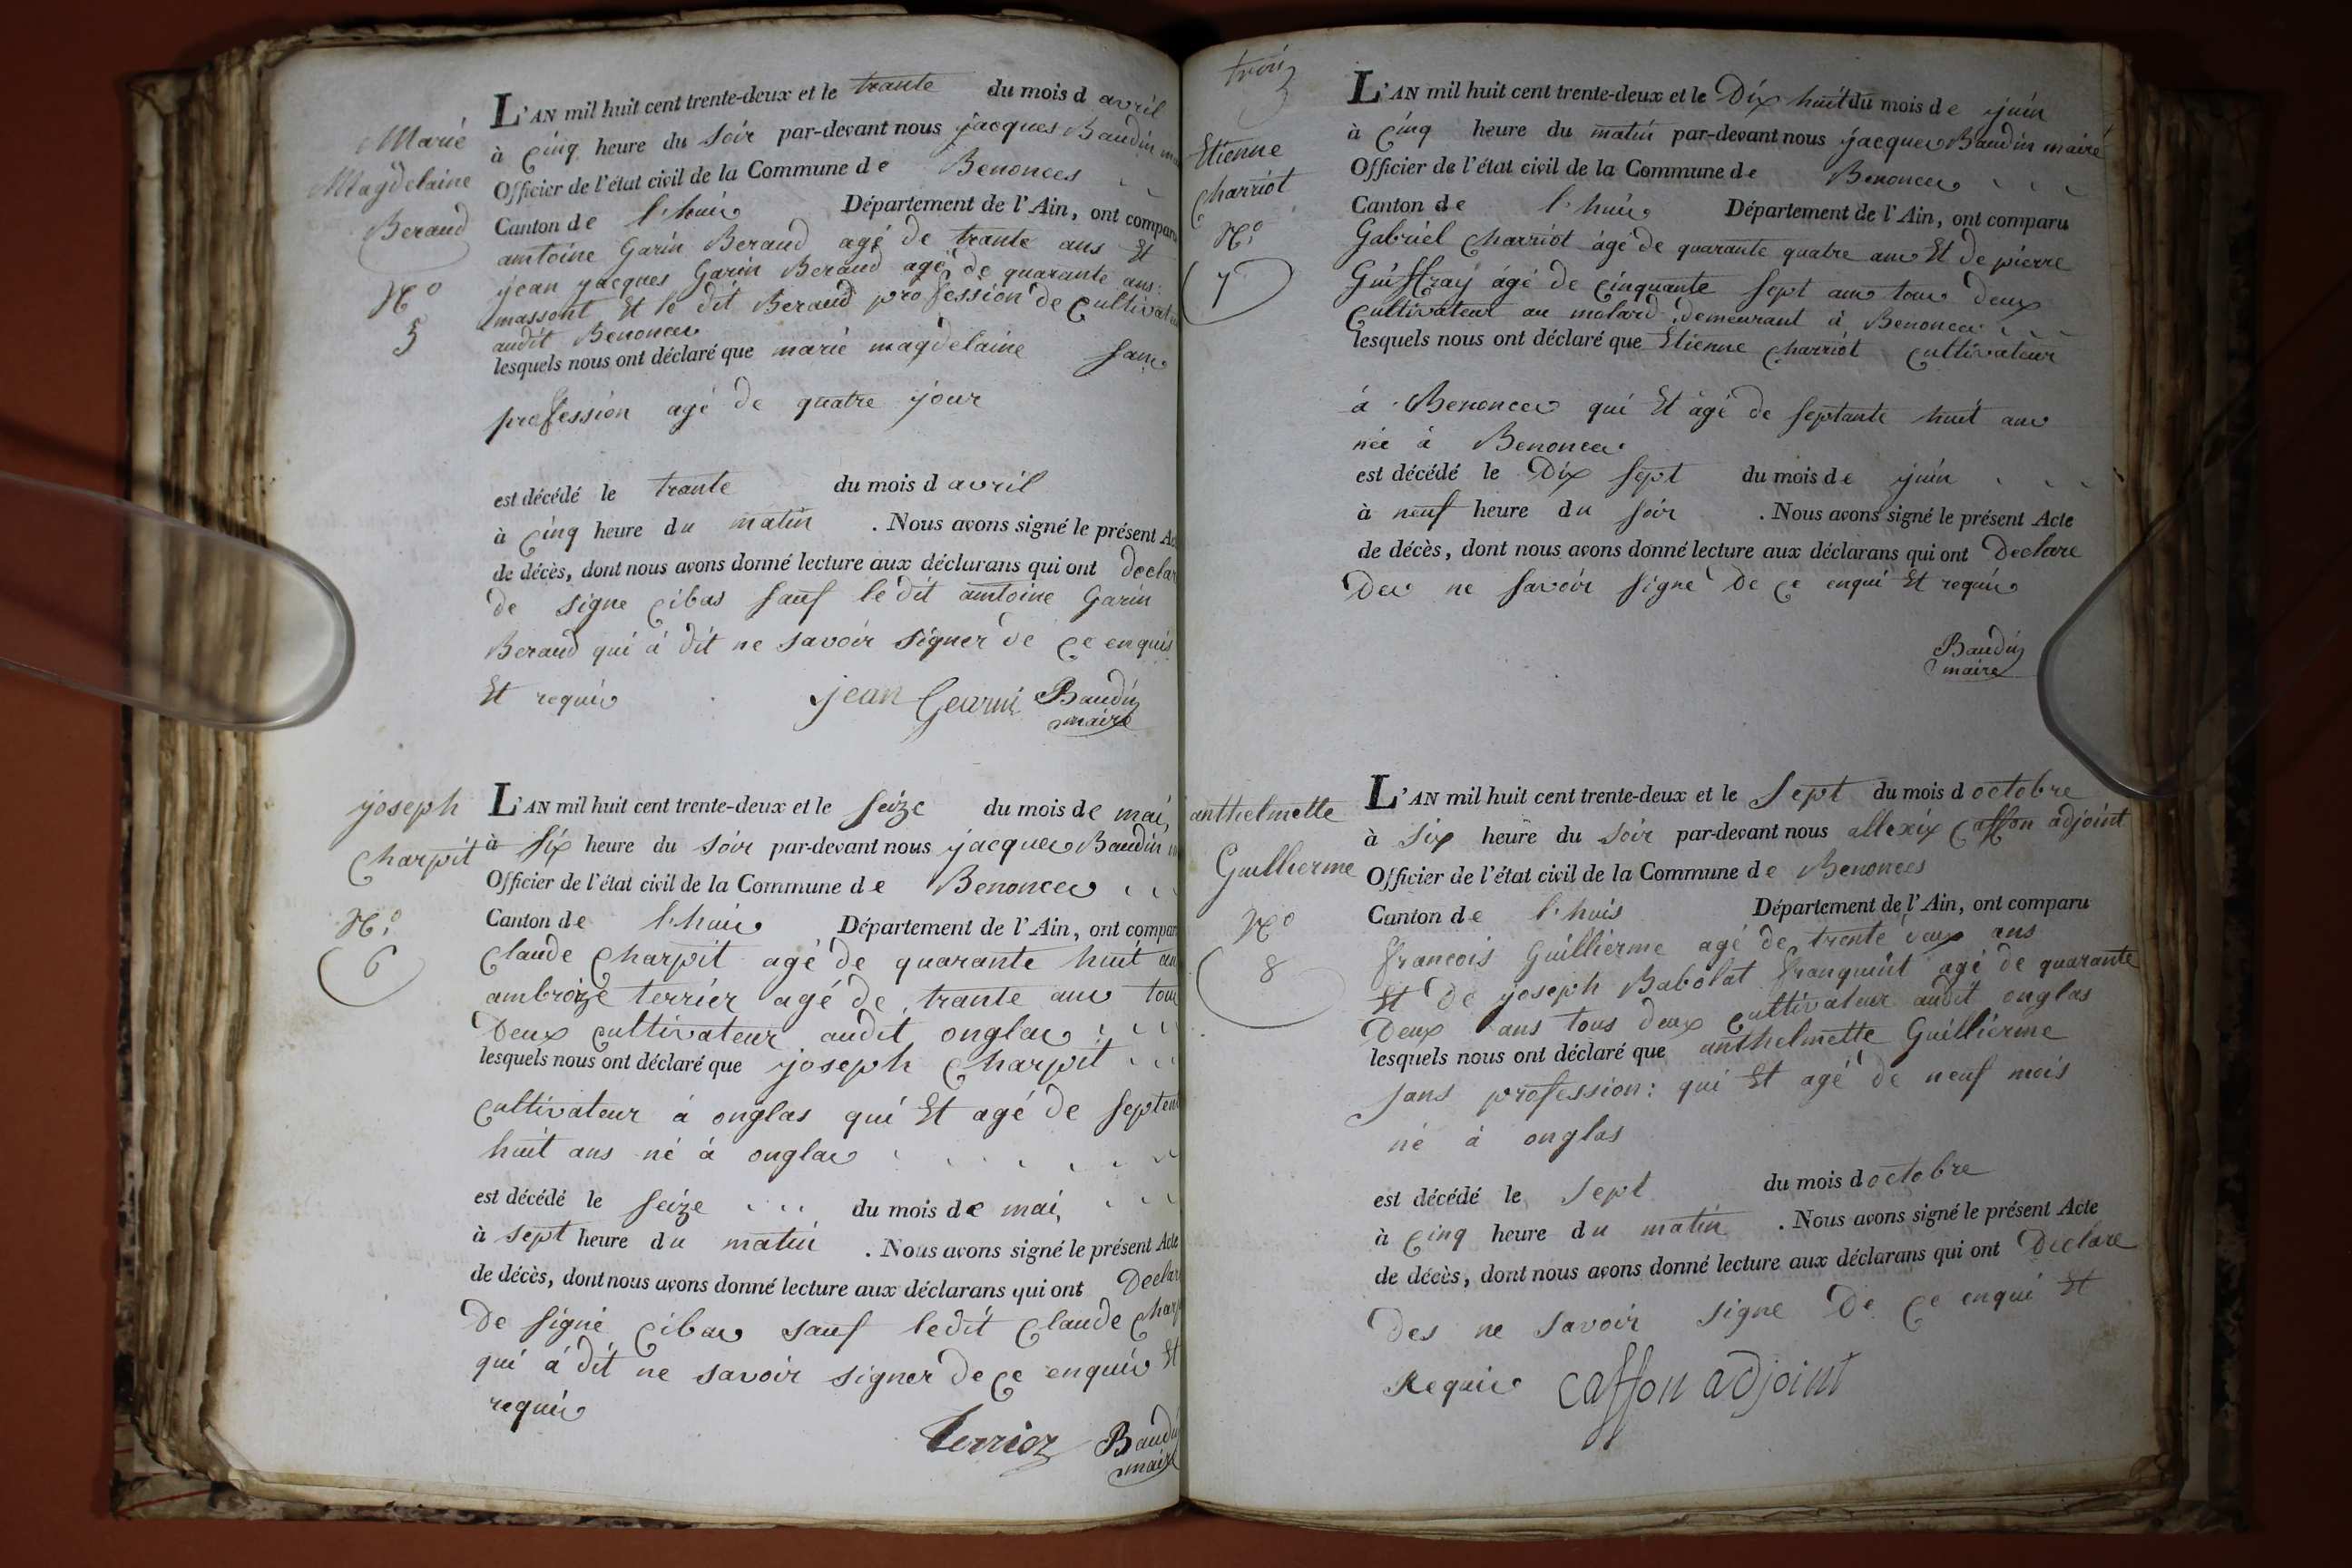 Marie
Magdelaine
Beraud
N.o
5
L'AN mil huit cent trente-deux et le trante du mois d avril
à cinq heure du soir par-devant nous jacques Baudin
Officier de l'état civil de la Commune de Benonces
Canton de l'huis Département de l'Ain, ont comparu
antoine Garin Beraud agé de trante ans Et
jean jacques Garin Beraud agé de quarante ans
massont Et le dit Beraud profession de Cultivat
audit Benonces
lesquels nous ont déclaré que marie magdelaine sans
profession agé de quatre jour
est décédé le trante du mois d avril
à cinq heure du matin . Nous avons signé le présent Ac
de décès, dont nous avons donné lecture aux déclarans qui ont declar
de signe cibas sauf le dit antoine Garin
Beraud qui à dit ne savoir signer de ce enquis
Et requis jean Baudin
maire
joseph
Charpit
N.o
6
L'AN mil huit cent trente-deux et le seize du mois de mai,
à six heure du soir par-devant nous jacques Baudin
Officier de l'état civil de la Commune de Benonces
Canton de l'huis Département de l'Ain, ont compar
Claude Charpit agé de quarante huit an
ambroize terrier agé de trante ans tous
Deux cultivateur audit onglas
lesquels nous ont déclaré que joseph Charpit
Cultivateur à onglas qui Et agé de septent
huit ans né à onglas
est décédé le seize du mois de mai,
à sept heure du matin . Nous avons signé le présent Acte
de décès, dont nous avons donné lecture aux déclarans qui ont Declar
De signé cibas sauf ledit Claude Charp
qui à dit ne savoir signer de ce enquis Et
requis
terrier Baudin
maire
trois
Etienne
Charriot
N.o
7
L'AN mil huit cent trente-deux et le Dix huit du mois de juin
à cinq heure du matin par-devant nous jacques Baudin maire
Officier de l'état civil de la Commune de Benonces
Canton de l'huis Département de l'Ain, ont comparu
Gabriel Charriot àgé de quarante quatre ans Et de pierre
Guiffray ágé de cinquante sept ans tous deux
Cultivateur au molard demeurant à Benonces
lesquels nous ont déclaré que Etienne Charriot Cultivateur
à Benonces qui Et àgé de septante huit ans
née à Benonces
est décédé le Dix sept du mois de juin
à neuf heure du soir . Nous avons signé le présent Acte
de décès, dont nous avons donné lecture aux déclarans qui ont Declare
Des ne savoir signe De ce enqui Et requis
Baudin
maire
anthelmette
Guillierme
N.o
8
L'AN mil huit cent trente-deux et le sept du mois d octobre
à six heure du soir par-devant nous allexix Caffon adjoint
Officier de l'état civil de la Commune de Benonces
Canton de l'huis Département de l'Ain, ont comparu
francois Guillierme agé de trente deux ans
Et de joseph Babolat franquint agé de quarante
Deux ans tous deux cultivateur audit onglas
lesquels nous ont déclaré que anthelmette Guillierme
sans profession: qui Et agé de neuf mois
né à onglas
est décédé le sept du mois d octobre
à cinq heure du matin . Nous avons signé le présent Acte
de décès, dont nous avons donné lecture aux déclarans qui ont Declare
Des ne savoir signe De ce enqui Et
Requis Caffon adjoint